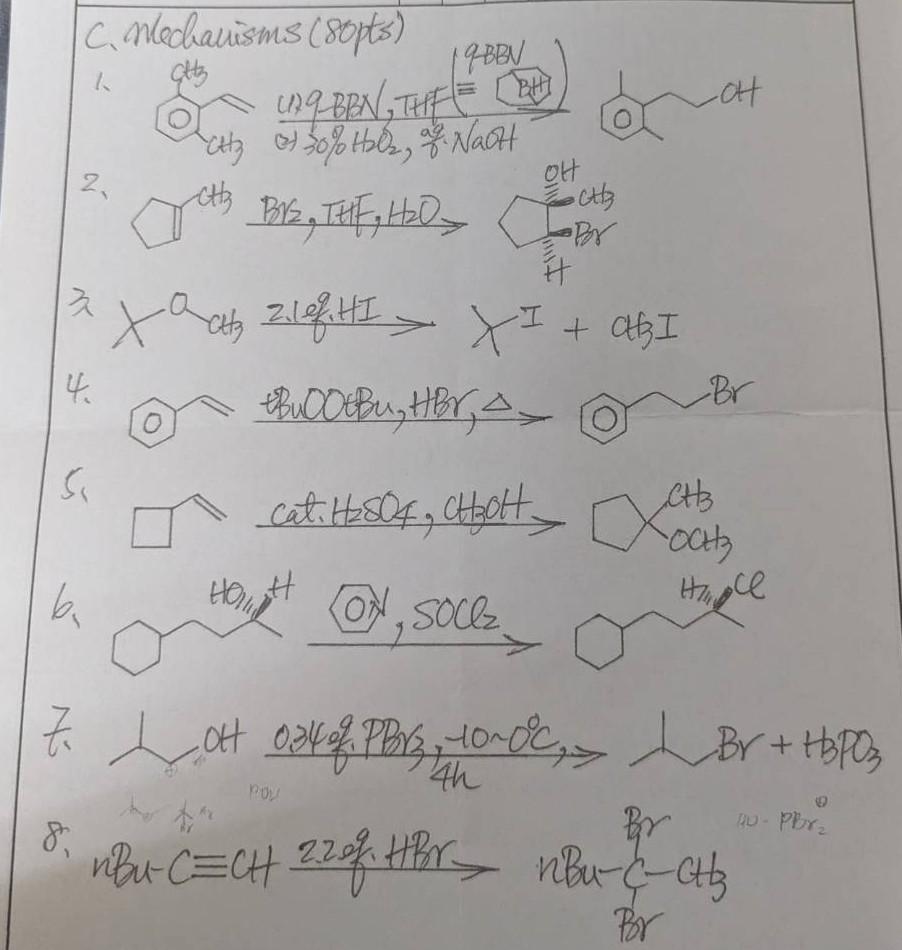 C. Mechanisms (80pts)
1. CH3 CH3 (1) 9-BBN, THF (9-BBN ≡ BH) OH
(2) 30% H2O2, aq. NaOH
2. CH3 Br2, THF, H2O OH CH3 Br H
3. O CH3 2.1 eq. HI I + CH3I
4. tBuOOtBu, HBr, △ Br
5. cat. H2SO4, CH3OH CH3 OCH3
6. HO H N, SOCl2 H Cl
7. OH 0.34 eq. PBr3, -10~0°C, Br + H3PO3
4h
8. nBu-C≡CH 2.2 eq. HBr nBu-C-CH3
Br
Br